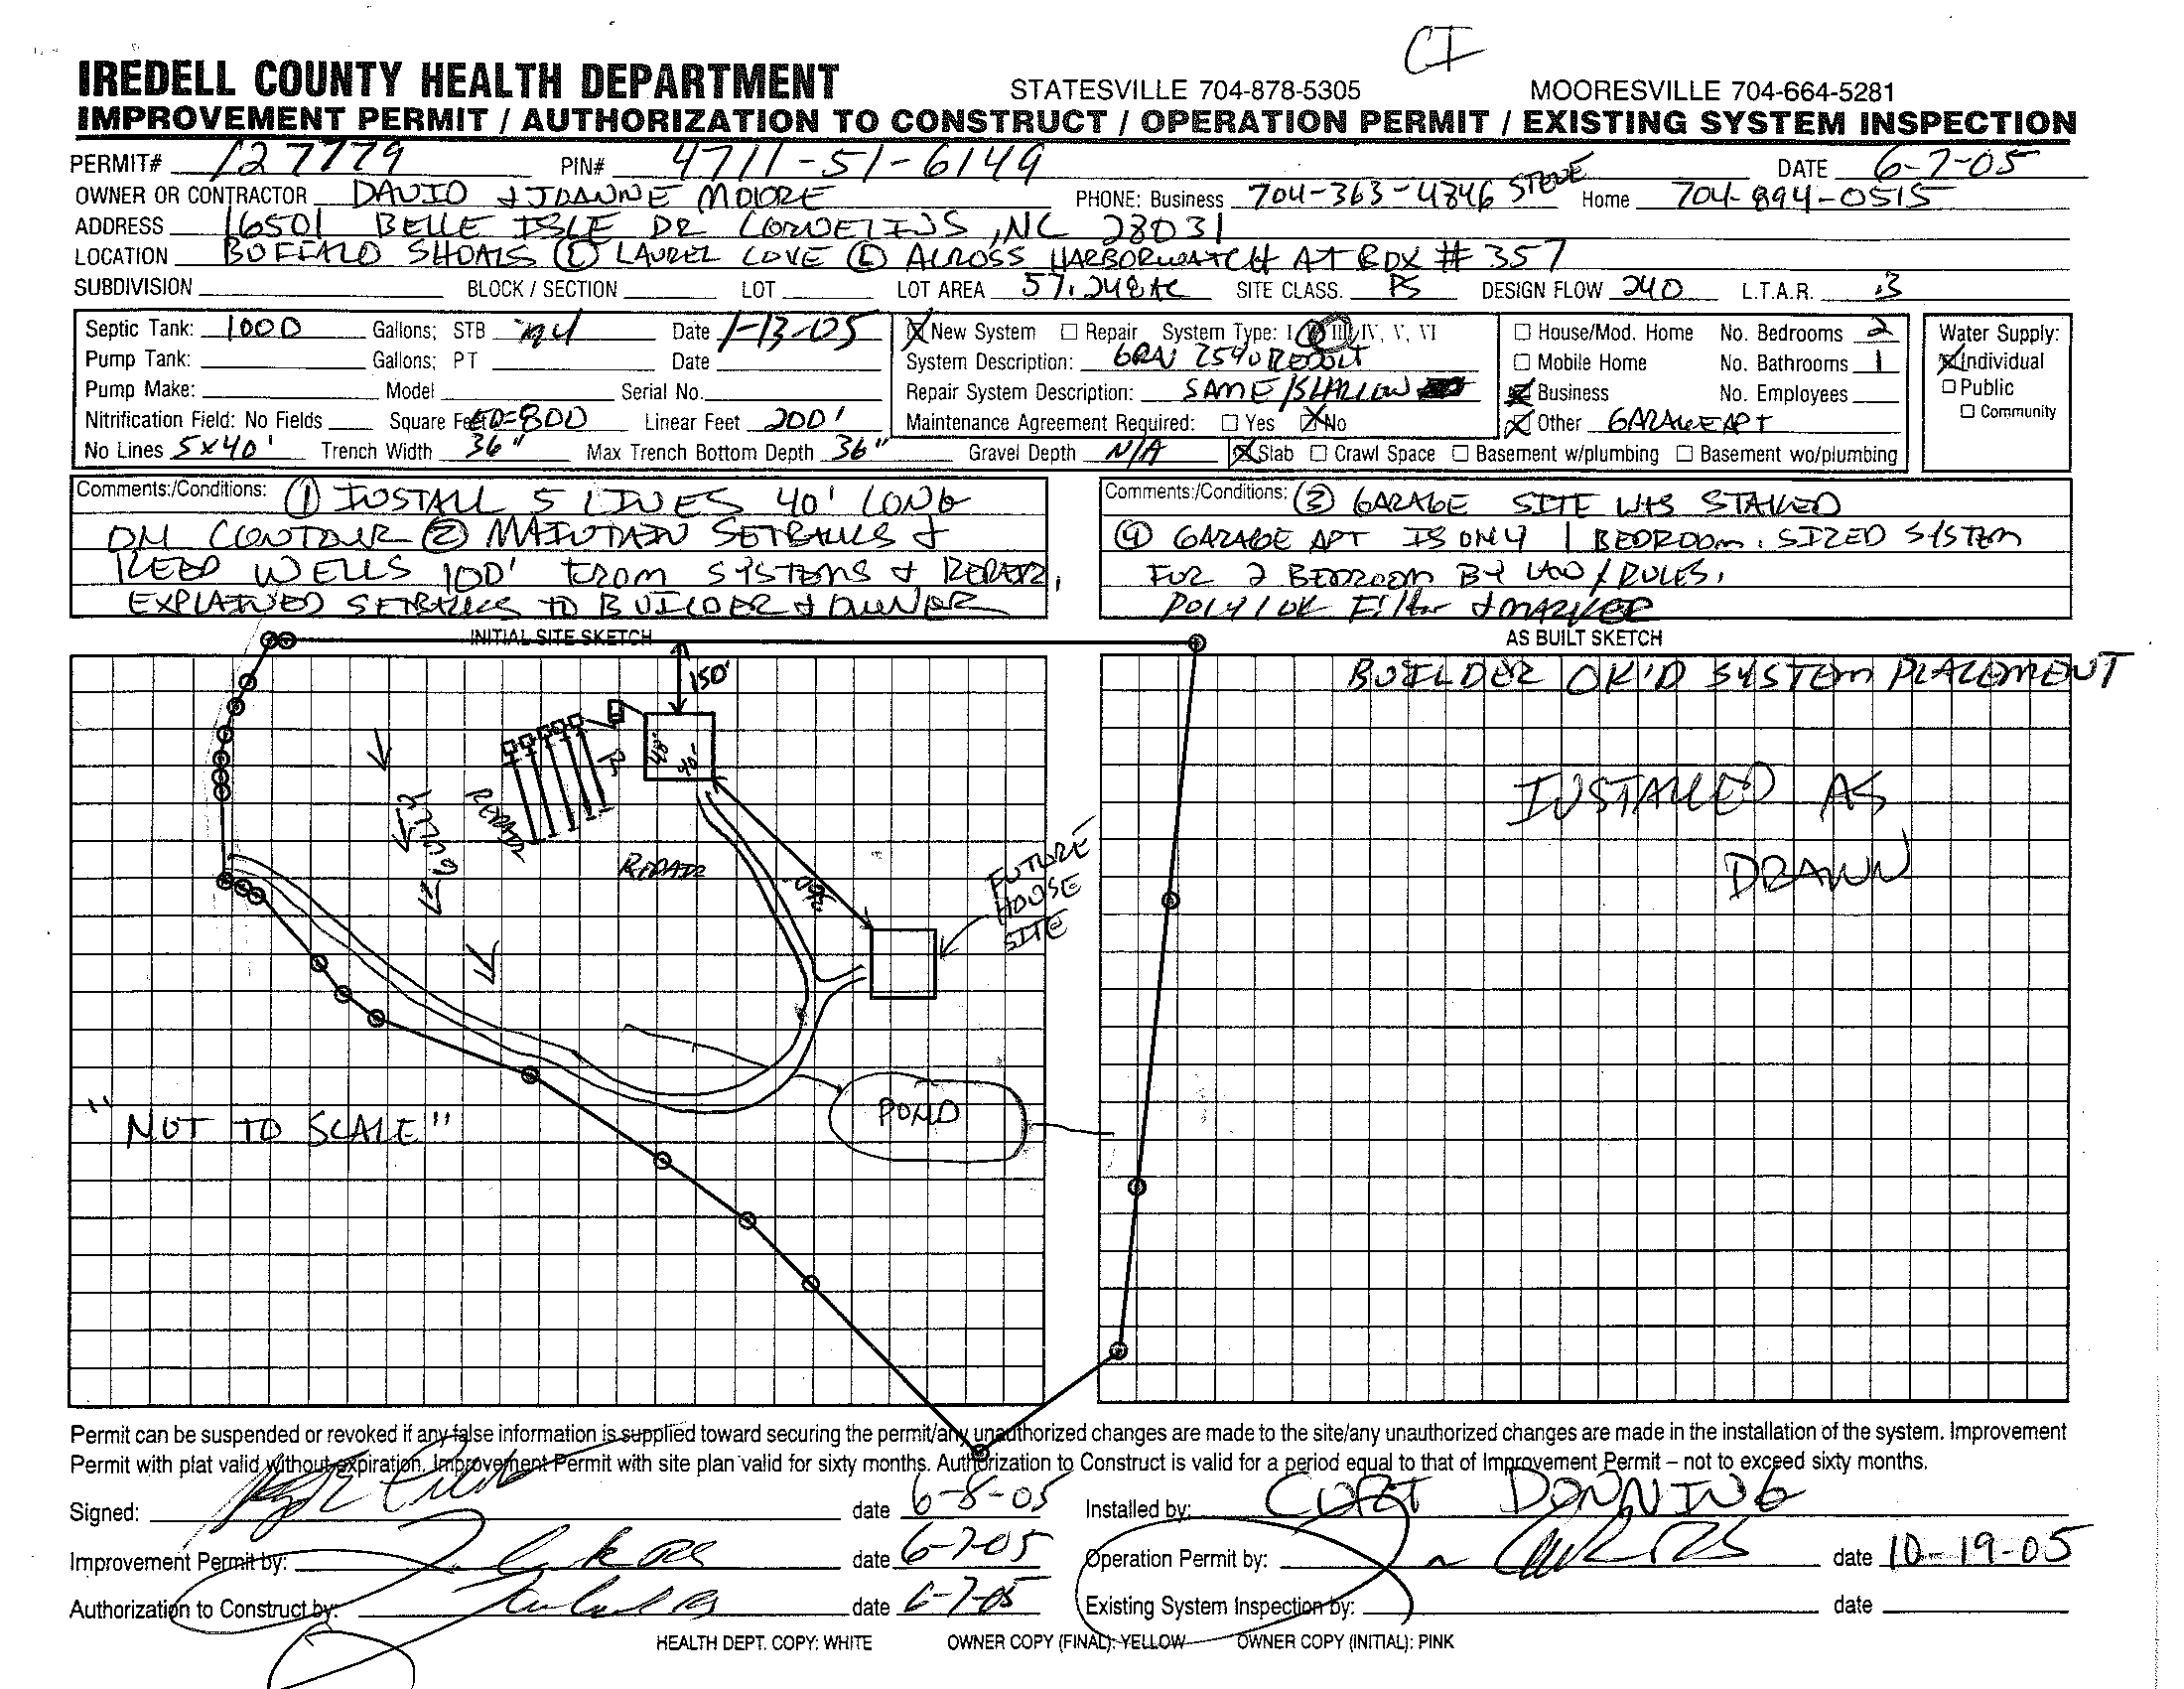 CI
IREDELL COUNTY HEALTH DEPARTMENT STATESVILLE 704-878-5305 MOORESVILLE 704-664-5281
IMPROVEMENT PERMIT / AUTHORIZATION TO CONSTRUCT / OPERATION PERMIT / EXISTING SYSTEM INSPECTION
PERMIT# 127779 PIN# 4711-51-6149 DATE 6-7-05
OWNER OR CONTRACTOR DAVID & JOANNE MOORE PHONE: Business 704-363-4846 STEVE Home 704-894-0515
ADDRESS 16501 BELLE ISLE DR CORNELIUS, NC 28031
LOCATION BUFFALO SHOALS (L) LAUREL COVE (L) ACROSS HARBORWATCH AT BOX # 357
SUBDIVISION BLOCK / SECTION LOT LOT AREA 57.248 AC SITE CLASS. PS DESIGN FLOW 240 L.T.A.R. .3
Septic Tank: 1000 Gallons; STB Date 1-13-05 New System Repair System Type: I III, IV, V, VI House/Mod. Home No. Bedrooms 2 Water Supply:
Pump Tank: Gallons; PT Date System Description: 25% REDUCT Mobile Home No. Bathrooms 1 Individual
Pump Make: Model Serial No. Repair System Description: SAME/SHALLOW Business No. Employees Public
Nitrification Field: No Fields Square Feet 800 Linear Feet 200' Maintenance Agreement Required: Yes No Other GARAGE APT Community
No Lines 5x40' Trench Width 36" Max Trench Bottom Depth 36" Gravel Depth N/A Slab Crawl Space Basement w/plumbing Basement wo/plumbing
Comments:/Conditions: (1) INSTALL 5 LINES 40' LONG
ON CONTOUR (2) MAINTAIN SETBACKS &
KEEP WELLS 100' FROM SYSTEMS & REPAIR.
EXPLAINED SETBACKS TO BUILDER & OWNER
Comments:/Conditions: (3) GARAGE SITE WAS STAKED
(4) GARAGE APT IS ONLY 1 BEDROOM. SIZED SYSTEM
FOR 2 BEDROOM BY LAW/RULES.
POLYLOK Filter & MARKER
INITIAL SITE SKETCH
AS BUILT SKETCH
150'
48'
40'
REPAIR
REPAIR
FUTURE
HOUSE
SITE
POND
"NOT TO SCALE"
BUILDER OK'D SYSTEM PLACEMENT
INSTALLED AS
DRAWN
Permit can be suspended or revoked if any false information is supplied toward securing the permit/any unauthorized changes are made to the site/any unauthorized changes are made in the installation of the system. Improvement
Permit with plat valid without expiration. Improvement Permit with site plan valid for sixty months. Authorization to Construct is valid for a period equal to that of Improvement Permit – not to exceed sixty months.
Signed: date 6-8-05 Installed by: CURT DONNING
Improvement Permit by: date 6-7-05 Operation Permit by: date 10-19-05
Authorization to Construct by: date 6-7-05 Existing System Inspection by: date
HEALTH DEPT. COPY: WHITE OWNER COPY (FINAL): YELLOW OWNER COPY (INITIAL): PINK